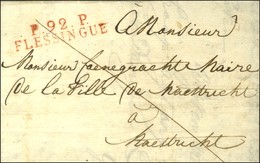 P. 92. P.
FLESSINGUE
À Monsieur
Monsieur Maire
de la Ville de Maestricht
à
Maestricht